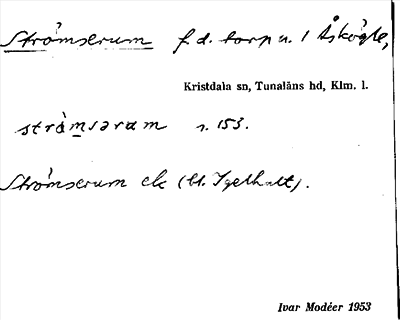 Strömserum f.d. torp u. 1 Åskögle,
Kristdala sn, Tunaläns hd, Klm. l.
strömsərum s. 153.
Strömserum ek (bl. Igelhult).
Ivar Modéer 1953